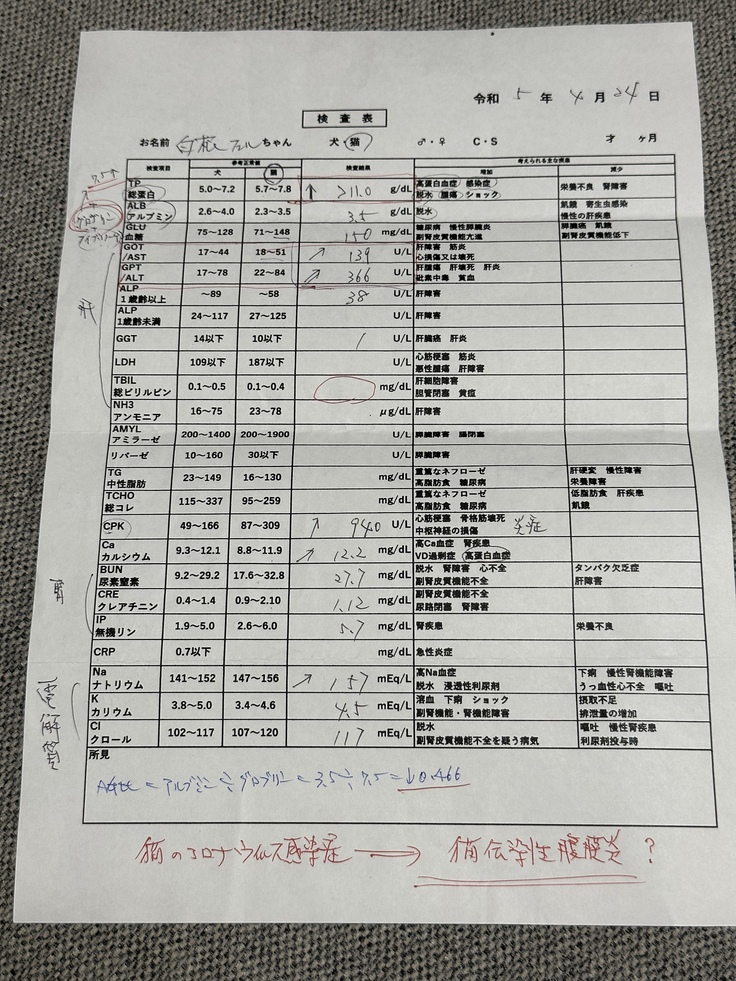 令和 5 年 4 月 24 日
検 査 表
お名前 フェル ちゃん 犬・猫 ♂・♀ C・S 才 ヶ月
検査項目 参考正常値 検査結果 考えられる主な疾患
犬 猫 増加 減少
7.5↑
TP 総蛋白 5.0〜7.2 5.7〜7.8 ↑ >11.0 g/dL 高蛋白血症 感染症 脱水 腫瘍 ショック 栄養不良 腎障害
グロブリン
ALB アルブミン 2.6〜4.0 2.3〜3.5 3.5 g/dL 脱水 飢餓 寄生虫感染 慢性の肝疾患
GLU 血糖 75〜128 71〜148 150 mg/dL 糖尿病 慢性膵臓炎 副腎皮質機能亢進 膵臓癌 飢餓 副腎皮質機能低下
GOT /AST 17〜44 18〜51 ↗ 139 U/L 肝障害 筋炎 心損傷又は壊死
GPT /ALT 17〜78 22〜84 ↗ 366 U/L 肝腫瘍 肝壊死 肝炎 砒素中毒 貧血
肝
ALP 1歳齢以上 〜89 〜58 38 U/L 肝障害
ALP 1歳齢未満 24〜117 27〜125 U/L 肝障害
GGT 14以下 10以下 1 U/L 肝臓癌 肝炎
LDH 109以下 187以下 U/L 心筋梗塞 筋炎 悪性腫瘍 肝障害
TBIL 総ビリルビン 0.1〜0.5 0.1〜0.4 mg/dL 肝細胞障害 胆管閉塞 黄疸
NH3 アンモニア 16〜75 23〜78 μg/dL 肝障害
AMYL アミラーゼ 200〜1400 200〜1900 U/L 膵臓障害 腸閉塞
リパーゼ 10〜160 30以下 U/L 膵臓障害
TG 中性脂肪 23〜149 16〜130 mg/dL 重篤なネフローゼ 高脂肪食 糖尿病 肝硬変 慢性障害 栄養障害
TCHO 総コレ 115〜337 95〜259 mg/dL 重篤なネフローゼ 高脂肪食 糖尿病 低脂肪食 肝疾患 飢餓
CPK 49〜166 87〜309 ↗ 940 U/L 心筋梗塞 骨格筋壊死 中枢神経の損傷 炎症
Ca カルシウム 9.3〜12.1 8.8〜11.9 ↗ 12.2 mg/dL 高Ca血症 腎疾患 VD過剰症 高蛋白血症
腎
BUN 尿素窒素 9.2〜29.2 17.6〜32.8 27.7 mg/dL 脱水 腎障害 心不全 副腎皮質機能不全 タンパク欠乏症 肝障害
CRE クレアチニン 0.4〜1.4 0.9〜2.10 1.12 mg/dL 副腎皮質機能不全 尿路閉塞 腎障害
IP 無機リン 1.9〜5.0 2.6〜6.0 5.7 mg/dL 腎疾患 栄養不良
CRP 0.7以下 mg/dL 急性炎症
電解質
Na ナトリウム 141〜152 147〜156 ↗ 157 mEq/L 高Na血症 脱水 浸透性利尿剤 下痢 慢性腎機能障害 うっ血性心不全 嘔吐
K カリウム 3.8〜5.0 3.4〜4.6 4.5 mEq/L 溶血 下痢 ショック 副腎機能・腎機能障害 摂取不足 排泄量の増加
Cl クロール 102〜117 107〜120 117 mEq/L 脱水 副腎皮質機能不全を疑う病気 嘔吐 慢性腎疾患 利尿剤投与時
所見
A/G比 = アルブミン ÷ グロブリン = 3.5 ÷ 7.5 = ↓0.466
猫のコロナウイルス感染症 → 猫伝染性腹膜炎 ?